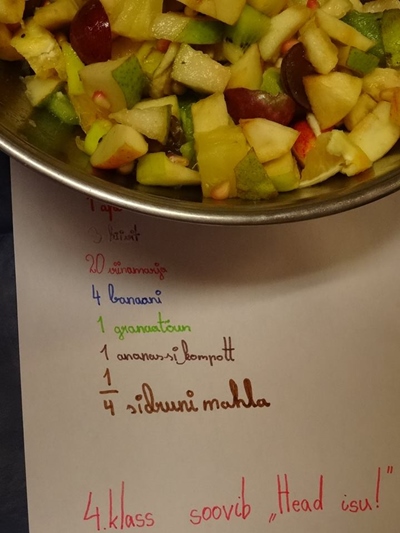 kiivit
20 viinamarja
4 banaani
1 granaatõun
1 ananassi kompott
1/4 sidruni mahla
4. klass soovib „Head isu!”